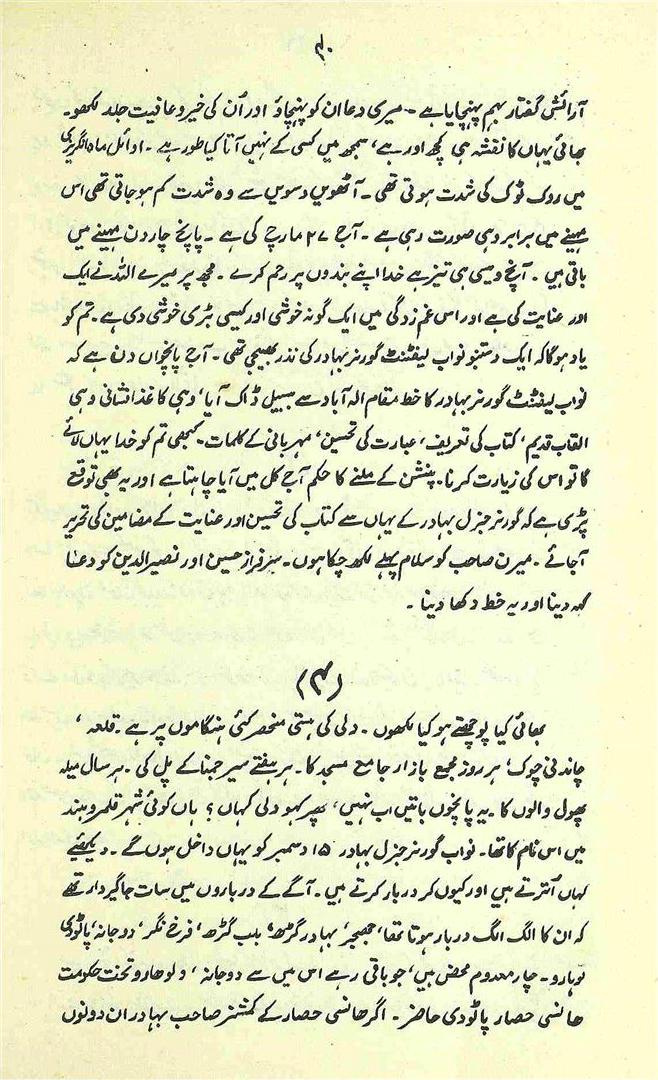 ۴۰
آرائش گفتار بہم پہنچایا ہے ۔ میری دعا ان کو پہنچاؤ اور اُن کی خیر و عافیت جلد لکھو۔
بھائی یہاں کا نقشہ ہی کچھ اور ہے، سمجھ میں کسی کے نہیں آتا کیا طور ہے ۔ اوائل ماہ انگریزی
میں روک ٹوک کی شدت ہوتی تھی ۔ آٹھویں دسویں سے وہ شدت کم ہو جاتی تھی اس
مہینے میں برابر وہی صورت رہی ہے ۔ آج ۲۷ مارچ کی ہے ۔ پانچ چار دن مہینے میں
باقی ہیں ۔ آنچ ویسی ہی تیز ہے خدا اپنے بندوں پر رحم کرے ۔ مجھ پر میرے اللہ نے ایک
اور عنایت کی ہے اور اس غم زدگی میں ایک گونہ خوشی اور کیسی بڑی خوشی دی ہے ۔ تم کو
یاد ہوگا کہ ایک دستنبو نواب لیفٹنٹ گورنر بہادر کی نذر بھیجی تھی ۔ آج پانچواں دن ہے کہ
نواب لیفٹنٹ گورنر بہادر کا خط مقام الہ آباد سے سبیل ڈاک آیا، وہی کاغذ افشانی وہی
القاب قدیم، کتاب کی تعریف، عبارت کی تحسین، مہربانی کے کلمات ۔ کبھی تم کو خدا یہاں لائے
گا تو اس کی زیارت کرنا ۔ پنشن کے ملنے کا حکم آج کل میں آیا چاہتا ہے اور یہ بھی توقع
پڑی ہے کہ گورنر جنرل بہادر کے یہاں سے کتاب کی تحسین اور عنایت کے مضامین کی تحریر
آجائے ۔ میرن صاحب کو سلام پہلے لکھ چکا ہوں ۔ سرفراز حسین اور نصیرالدین کو دعا
کہہ دینا اور یہ خط دکھا دینا ۔
(۴)
بھائی کیا پوچھتے ہو کیا لکھوں ۔ دلی کی ہستی منحصر کئی ہنگاموں پر ہے ۔ قلعہ،
چاندنی چوک، ہر روز مجمع بازار جامع مسجد کا ۔ ہر ہفتے سیر جمنا کے پل کی ۔ ہر سال میلہ
پھول والوں کا ۔ یہ پانچوں باتیں اب نہیں، پھر کہو دلی کہاں؟ ہاں کوئی شہر قلمرو ہند
میں اس نام کا تھا ۔ نواب گورنر جنرل بہادر ۱۵ دسمبر کو یہاں داخل ہوں گے ۔ دیکھئیے
کہاں اُترتے ہیں اور کیوں کر دربار کرتے ہیں ۔ آگے کے درباروں میں سات جاگیردار تھے
کہ ان کا الگ الگ دربار ہوتا تھا، جھجر، بہادر گڑھ، بلب گڑھ، فرخ نگر، دوجانہ، پاٹودی
لوہارو ۔ چار معدوم محض ہیں، جو باقی رہے اس میں سے دوجانہ، ولوہارو تحت حکومت
ہانسی حصار پاٹودی حاضر ۔ اگر ہانسی حصار کے کمشنر صاحب بہادر ان دونوں